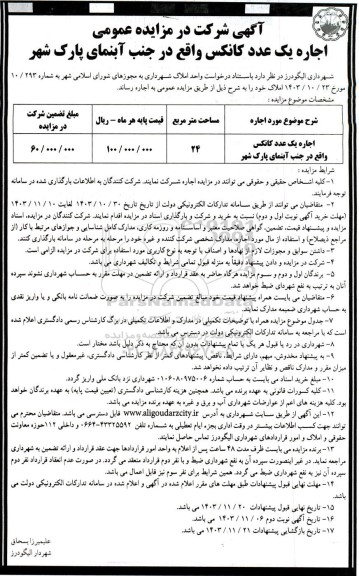 آگهی شرکت در مزایده عمومی
اجاره یک عدد کانکس واقع در جنب آبنمای پارک شهر
شهرداری الیگودرز در نظر دارد باستناد درخواست واحد املاک شهرداری به مجوزهای شورای اسلامی شهر به شماره ۲۹۳ / ۱۰
مورخ ۲۳ / ۱۰ / ۱۴۰۳ املاک خود را به شرح ذیل از طریق مزایده عمومی به اجاره رساند.
مشخصات موضوع مزایده :
شرح موضوع مورد اجاره	مساحت متر مربع	قیمت پایه هر ماه – ریال	مبلغ تضمین شرکت در مزایده
اجاره یک عدد کانکس واقع در جنب آبنمای پارک شهر	۲۴	۱۰۰/۰۰۰/۰۰۰	۶۰/۰۰۰/۰۰۰
شرایط مزایده :
۱–کلیه اشخاص حقیقی و حقوقی می توانند در مزایده اجاره شرکت نمایند. شرکت کنندگان به اطلاعات بارگذاری شده در سامانه
توجه فرمایند.
۲– متقاضیان می توانند از طریق سامانه تدارکات الکترونیکی دولت از تاریخ ۳۰ / ۱۰ / ۱۴۰۳ لغایت ۱۰ / ۱۱ / ۱۴۰۳
(مهلت خرید آگهی نوبت اول و دوم) نسبت به خرید و شرکت و بارگذاری اسناد در مزایده اقدام نمایند. شرکت کنندگان در مزایده، اسناد
مزایده و پیشنهاد قیمت، تضمین، گواهی صلاحیت معتبر و اساسنامه و روزنامه کاری، مدارک کامل شناسایی و جوازهای مرتبط با کار (از
مراجع ذیصلاح) و استفاده از مال مورد اجاره، مدارک شخصی شرکت کننده و غیره خود را مرحله به مرحله در سامانه بارگذاری کنند.
۳– داشتن سوابق و مجوزات لازم از نهادها و اصناف با توجه به نوع کاربری مورد استفاده برای شرکت در مزایده الزامی است.
۴– شرکت در مزایده و دادن پیشنهاد دقیقاً به منزله قبول تمامی شرایط و تکالیف شهرداری می باشد.
۵– برندگان اول و دوم و سوم مزایده هرگاه حاضر به عقد قرارداد و ارائه تضمین در مهلت مقرر به حساب شهرداری نشوند سپرده
آنان به ترتیب به نفع شهرداری ضبط خواهد شد.
۶– متقاضیان می بایست همراه پیشنهاد قیمت خود مبالغ تضمین شرکت در مزایده را به صورت ضمانت نامه بانکی و یا واریز نقدی
به حساب شهرداری ضمیمه مدارک نمایند.
۷– جدول موضوع مزایده همراه با توضیحات تکمیلی در مدارک و اطلاعات تکمیلی در برگ کارشناس رسمی دادگستری اعلام شده
است که با مراجعه به سامانه تدارکات الکترونیکی دولت در دسترس می باشد.
۸– شهرداری در رد یا قبول هر یک یا تمام پیشنهادات بدون آن که محتاج به ذکر دلیل باشد مختار است.
۹– به پیشنهاد مخدوش، مبهم، دارای شرایط، ناقص، پیشنهادهای کمتر از نظر کارشناسی دادگستری، غیرمعقول و یا تضمین کمتر از
میزان مقرر و مدارک ناقص و نظایر آن ترتیب داده نخواهد شد.
۱۰– مبلغ خرید اسناد می بایست به حساب شماره ۰۱۰۶۰۸۰۱۹۷۵۰۰۶ شهرداری نزد بانک ملی واریز گردد.
۱۱– کلیه کسورات قانونی به عهده برنده می باشد. همچنین هزینه کارشناسی دادگستری (تعیین قیمت پایه) به عهده برندگان خواهد
بود. کلیه هزینه های اعم از عوارضات شهرداری آب و برق و غیره به عهده برنده مزایده می باشد.
۱۲– این آگهی از طریق سایت شهرداری به آدرس www.aligoudarzcity.ir قابل دسترسی می باشد. متقاضیان محترم می
توانند جهت کسب اطلاعات بیشتر در وقت اداری بجزء ایام تعطیلی به شماره تلفن ۴۳۳۲۵۵۹۲–۰۶۶ و داخلی ۱۱۲ حوزه معاونت
حقوقی و املاک و امور قراردادهای شهرداری الیگودرز تماس حاصل نمایند.
۱۳– برنده مزایده می بایست ظرف مدت ۴۸ ساعت پس از اعلام به واحد امور قراردادها جهت عقد قرارداد و ارائه تضمین به شهرداری
مراجعه نماید. در غیر اینصورت سپرده آن به نفع شهرداری ضبط و با نفر دوم قرارداد منعقد می گردد. در صورت عدم انعقاد قرارداد نفر دوم
سپرده آن نیز به نفع شهرداری ضبط می گردد. همین شرایط برای نفر سوم نیز قابل اعمال می باشد.
۱۴– مهلت نهایی قبول پیشنهادات طبق مهلت های مقرر اعلام شده در آگهی و اعلام شده در سامانه تدارکات الکترونیکی دولت می
باشد.
۱۵– تاریخ نهایی قبول پیشنهادات ۲۰ / ۱۱ / ۱۴۰۳ می باشد.
۱۶– تاریخ آگهی نوبت دوم ۰۶ / ۱۱ / ۱۴۰۳ می باشد.
۱۷– تاریخ بازگشایی پیشنهادات ۲۱ / ۱۱ / ۱۴۰۳ می باشد.
علیمیرزا یسحاق
شهردار الیگودرز